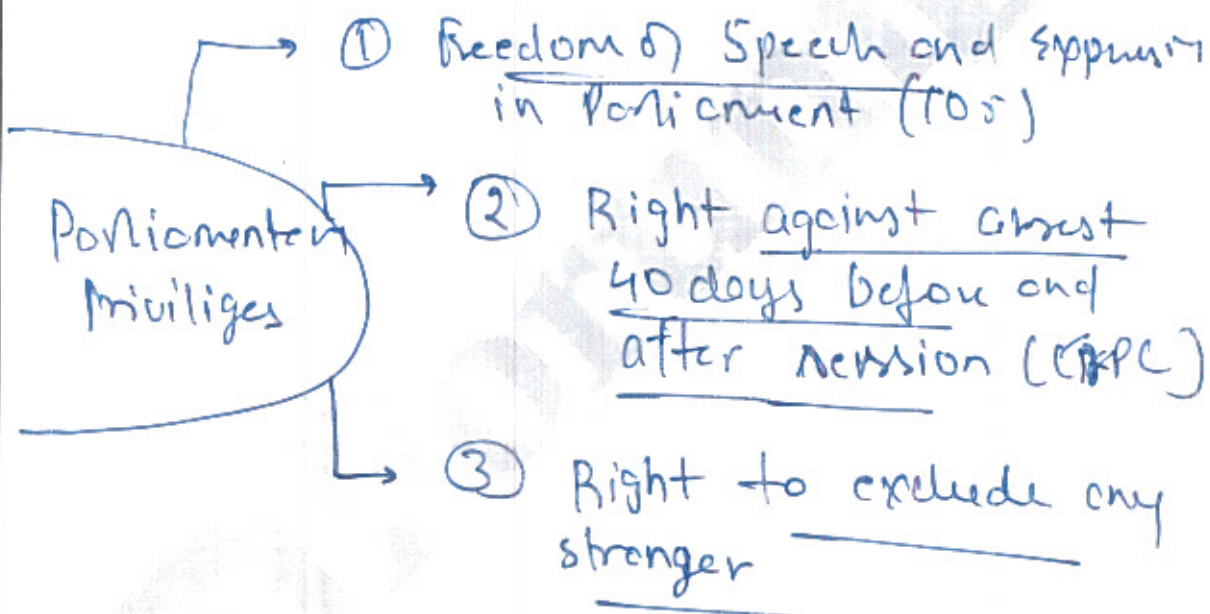 Parliamentary
Priviliges
① Freedom of Speech and Expression
in Parliament (105)
② Right against arrest
40 days before and
after session (CPC)
③ Right to exclude any
stranger